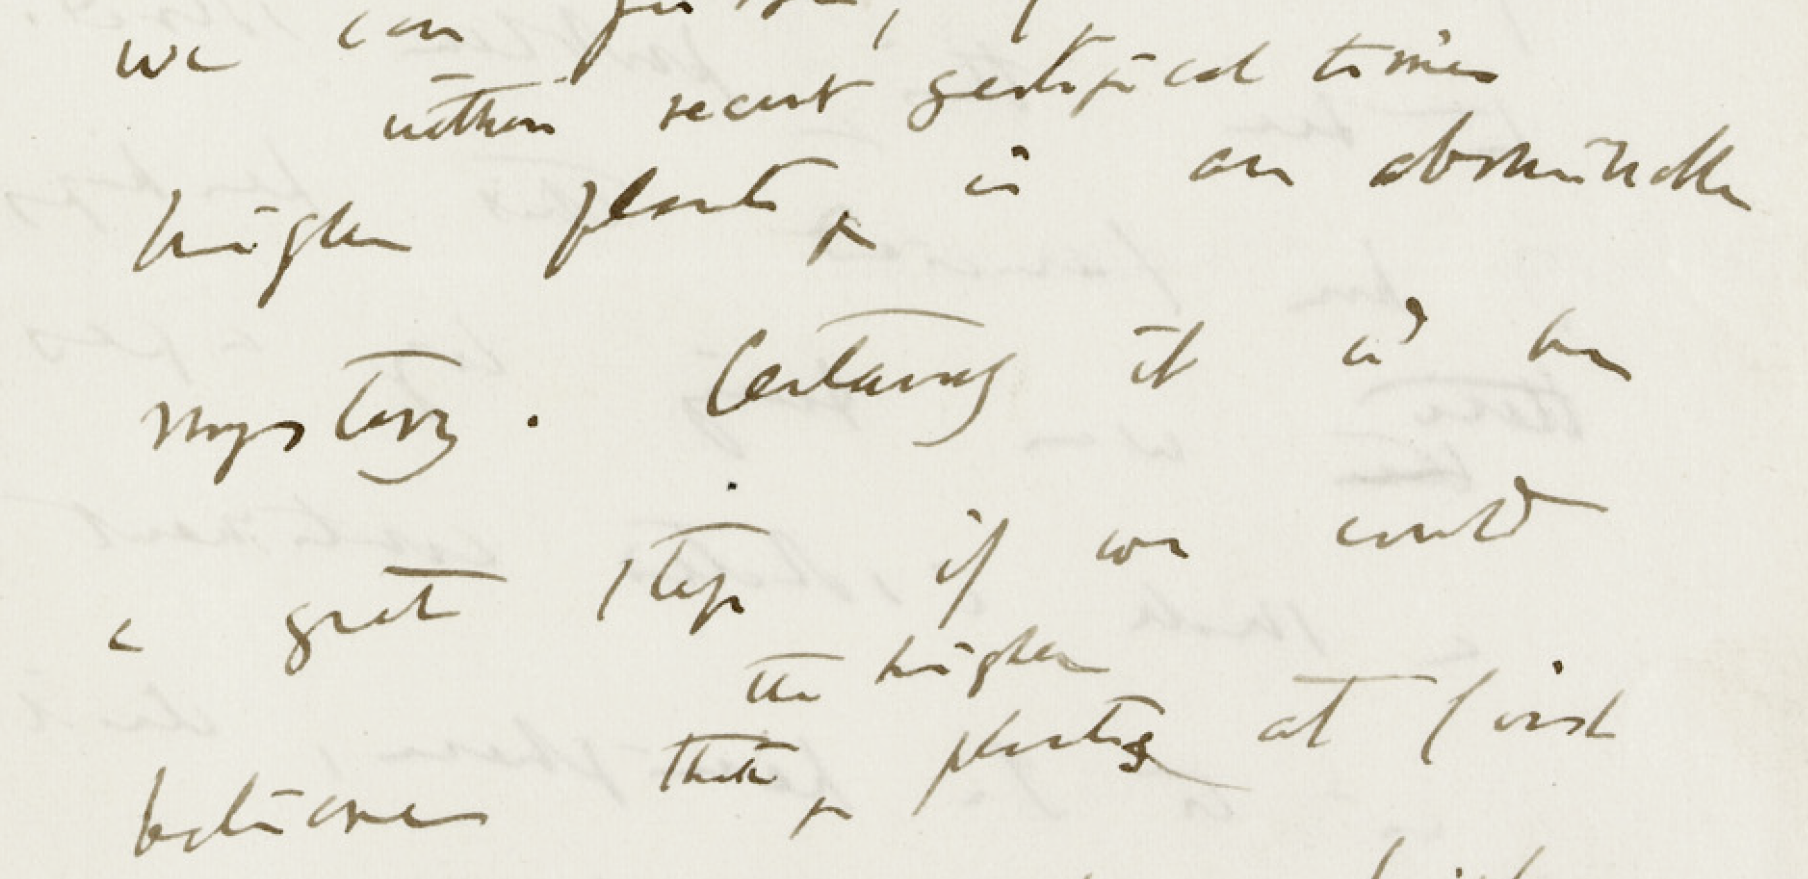 we can
within recent geological times
higher plants is an abominable
mystery. Certainly it wd be
a great step if we could
the higher
believe that plants at first